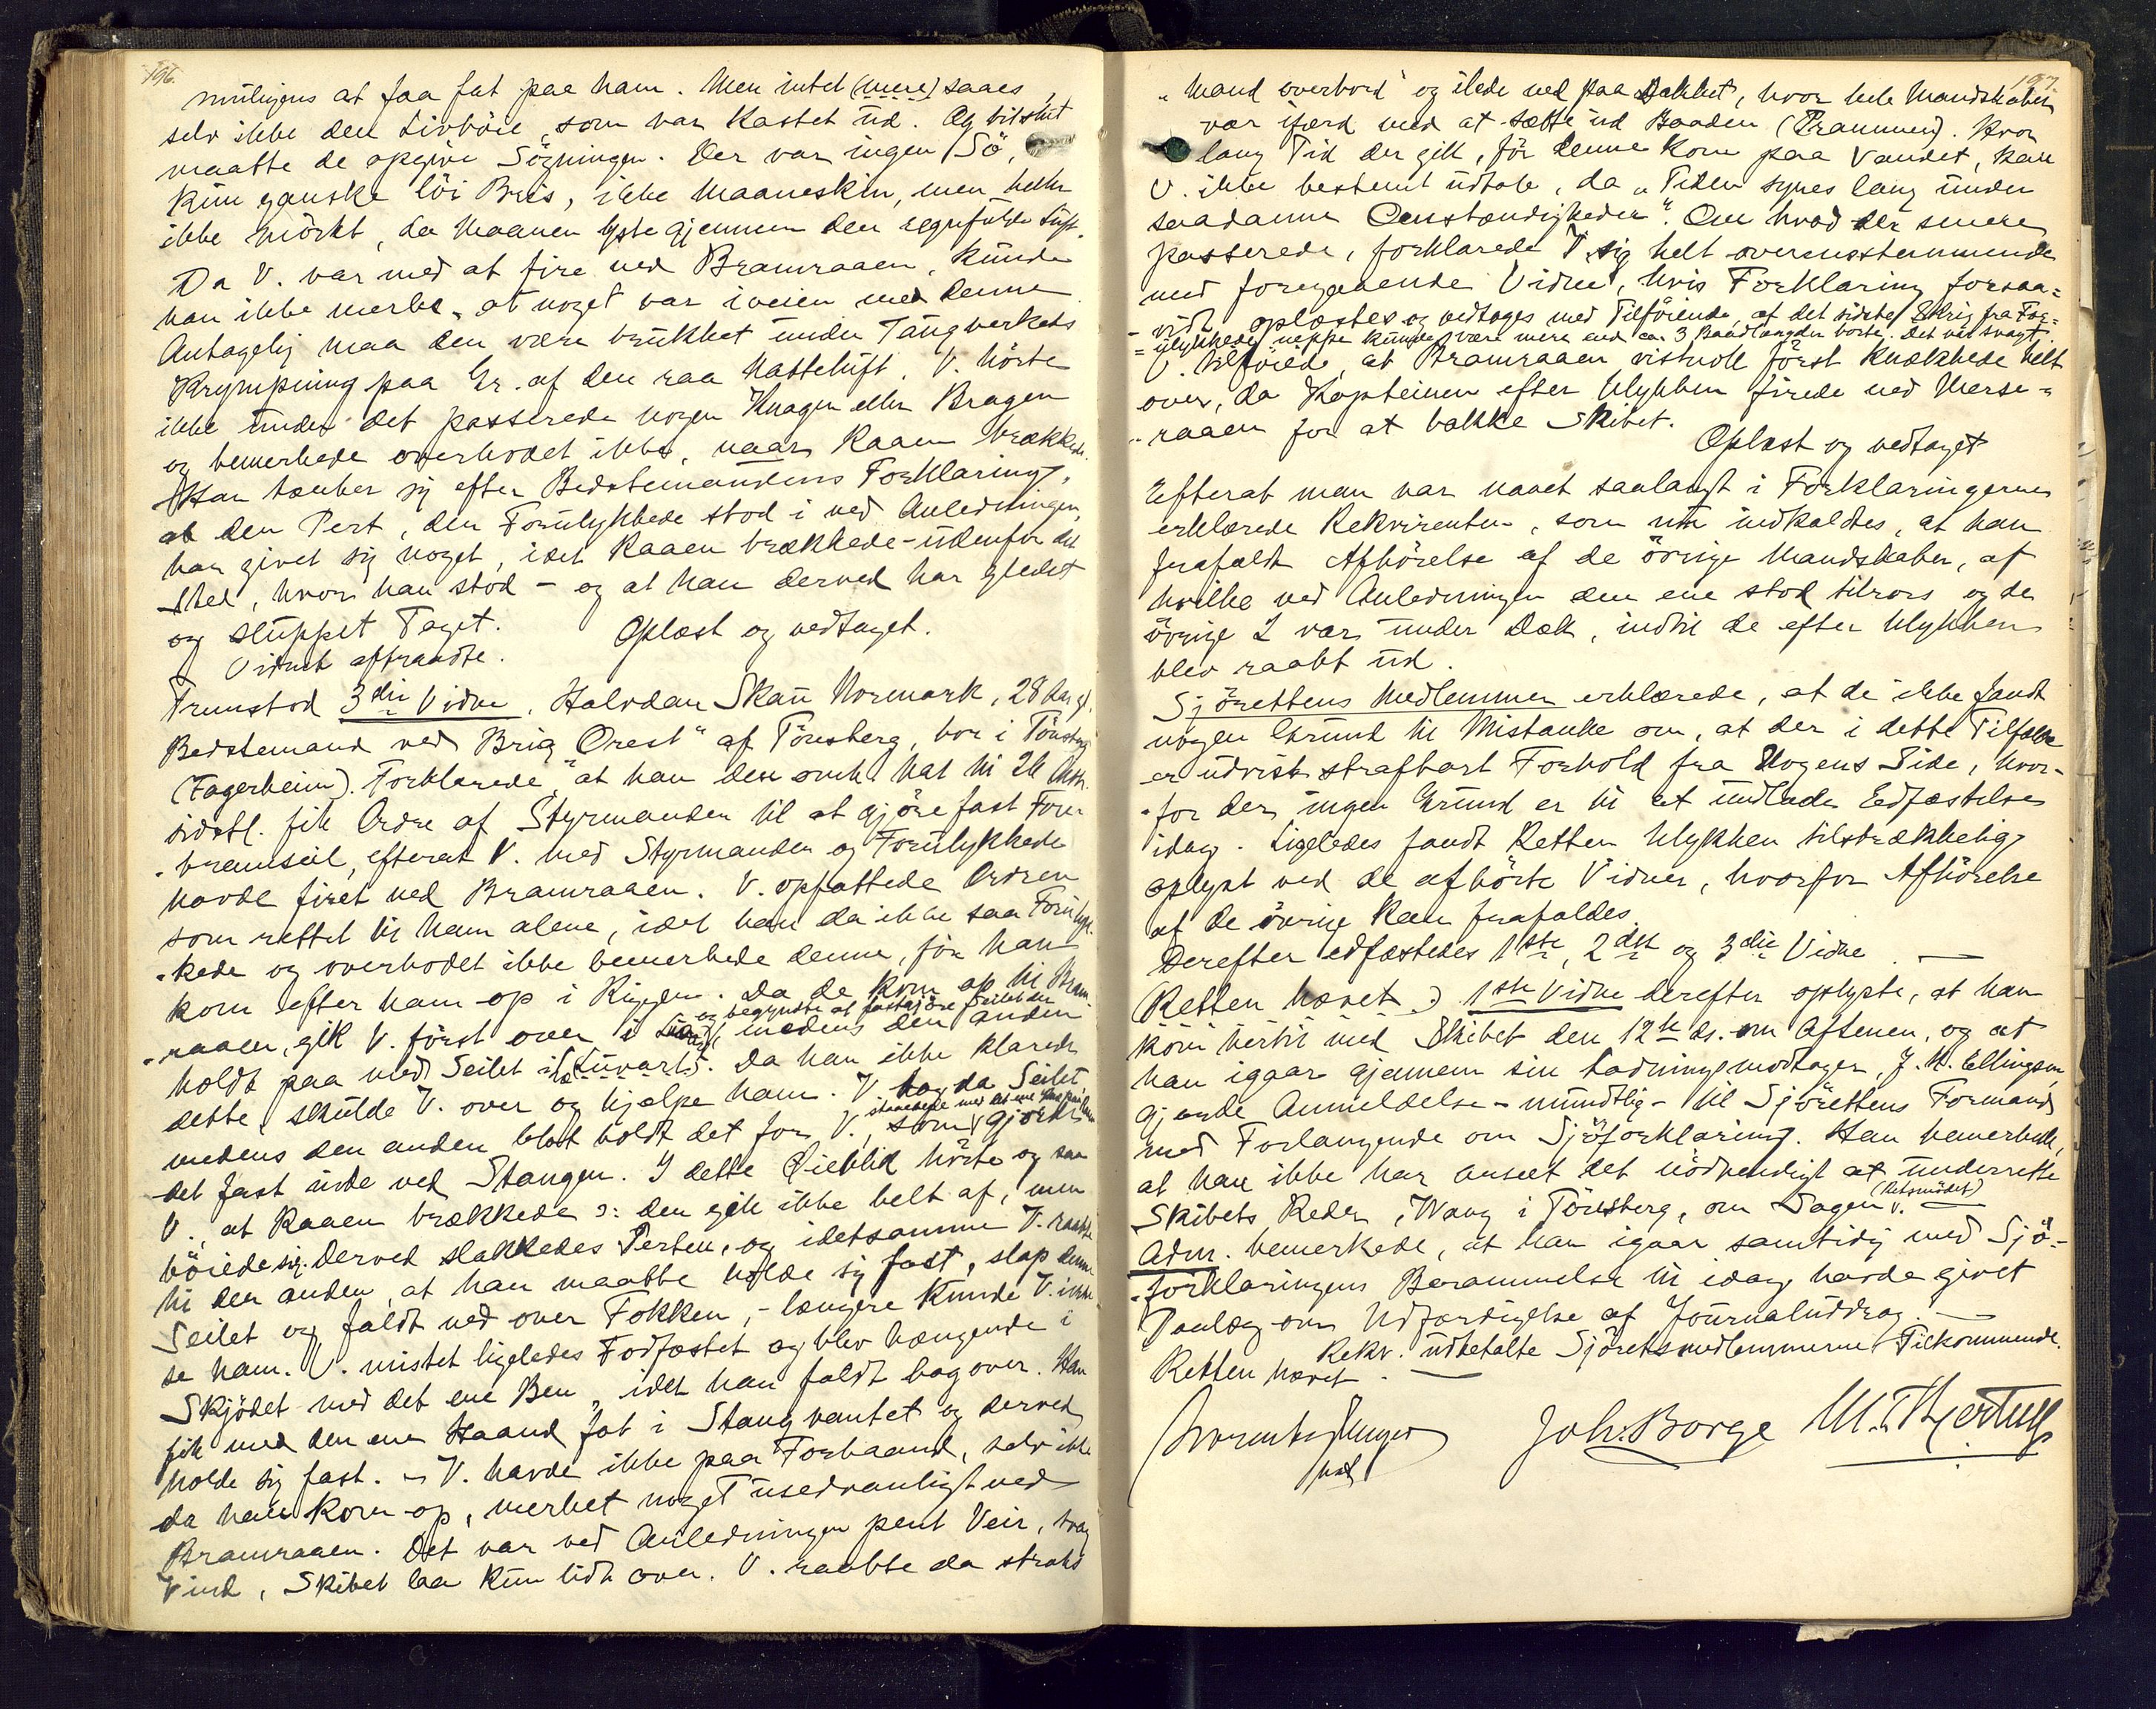 196.
muligens at faa fat paa ham. Men intet (mere) saaes,
selv ikke den Livböie, som var kastet ud. Og tilslut
maatte de opgive Sögningen. Der var ingen Sö,
kun ganske löi Bris, ikke Maaneskin, men heller
ikke mörkt, da Maanen lyste gjennem den regnfulde Luft.
Da V. var med at fire ned Bramraaen, kunde
han ikke merke, at noget var iveien med denne
Antagelig maa den være brukket under Tangverkets
Krympning paa Gr. af den raa Natteluft. V. hörte
ikke under det passerede nogen Knagen eller Bragen
og bemerkede overhodet ikke, naar Raaen brækkede.
Han tænker sig efter Bedstemandens Forklaring,
at den Pert, den Forulykkede stod i ved Anledningen,
har givet sig noget, idet Raaen brækkede - udenfor det
Sted, hvor han stod - og at han derved har gledet
og sluppet Taget. Oplæst og vedtaget.
Vidnet aftraadte.
Fremstod 3die Vidne, Halvdan Skau Normark, 28 Aar gl.
Bedstemand ved Brig "Orest" af Tönsberg, bor i Tönsberg
(Fagerheim). Forklarede, at han den omh. Nat til 26 Aug.
sidstl. fik Ordre af Styrmanden til at gjöre fast For-
bramseil, efterat V. med Styrmanden og Forulykkede
havde firet ned Bramraaen. V. opfattede Ordren
som rettet til ham alene, idet han da ikke saa Forulyk-
kede og overhodet ikke bemerkede denne, för han
kom efter ham op i Riggen. Da de kom op til Bram-
og begyndte at fastgjöre Seilet der
raaen, gik V. först over i Læ, medens den anden
holdt paa med Seilet i Luvart. Da han ikke klarede
dette, skulde V. over og hjælpe ham. V. tog da Seilet,
medens den anden blot holdt det for V., som gjorde
det fast inde ved Stangen. I dette Öieblik hörte og saa
V., at Raaen brækkede ɔ: den gik ikke helt af, men
böiede sig. Derved slakkedes Perten, og idetsamme V. raabte
til den anden, at han maatte holde sig fast, slap denne
Seilet og faldt ned over Fokken, - længere kunde V. ikke
se ham. V. mistet ligeledes Fodfæstet og blev hængende i
Skjödet med det ene Ben, idet han faldt bagover. Han
fik med den ene Haand fat i Stangvantet og derved
holde sig fast. - V. havde ikke paa Forhaand, selv ikke
da han kom op, merket noget usedvanligt ved
Bramraaen. Det var ved Anledningen pent Veir, svag
Vind, Skibet laa kun lidt over. V. raabte da straks
197.
"Mand overbord" og ilede ned paa Dækket, hvor hele Mandskabet
var ifærd med at sætte ud Baaden (Prammen). Hvor
lang Tid der gik, för denne kom paa Vandet, kan
V. ikke bestemt udtale, da "Tiden synes lang under
saadanne Omstændigheder". Om hvad der senere
passerede, forklarede V. sig helt overensstemmende
med foregaaende Vidne, hvis Forklaring forsaa-
vidt oplæstes og vedtages med Tilföiende, at det sidste Skrig fra For-
ulykkede neppe kunde være mere end ca. 3 Baadlængder borte. Det var svagt.
V. tilföiede, at Bramraaen vistnok först knækkede helt
over, da Kapteinen efter Ulykken firede ned Merse-
raaen for at bakke Skibet.
Oplæst og vedtaget
Efterat man var naaet saalangt i Forklaringerne
erklærede Rekvirenten, som nu indkaldtes, at han
frafaldt Afhörelse af de övrige Mandskaber, af
hvilke ved Anledningen den ene stod tilrors og de
övrige 2 var under Dæk, indtil de efter Ulykken
blev raabt ud.
Sjörettens Medlemmer erklærede, at de ikke fandt
nogen Grund til Mistanke om, at der i dette Tilfælde
er udvist strafbart Forhold fra Nogens Side, hvor-
for der ingen Grund er til at undlade Edfæstelse
idag. Ligeledes fandt Retten Ulykken tilstrækkelig
oplyst ved de afhörte Vidner, hvorfor Afhörelse
af de övrige kan frafaldes.
Derefter edfæstedes 1ste, 2det og 3die Vidne. —
(Retten hævet.) 1ste Vidne derefter oplyste, at han
kom hertil med Skibet den 12te ds. om Aftenen, og at
han igaar gjennem sin Ladningsmodtager, J. N. Ellingsen,
gjorde Anmeldelse - mundtlig - til Sjörettens Formand
med Forlangende om Sjöforklaring. Han bemerkede,
at han ikke har anseet det nödvendigt at underrette
Skibets Reder, Wang i Tönsberg, om Sagen (Retsmödet).
Adm. bemerkede, at han igaar samtidig med Sjö-
forklaringens Berammelse til idag havde givet
Paalæg om Udfærdigelse af Journaluddrag. —
Rekv. udbetalte Sjöretsmedlemmerne Tilkommende.
Retten hævet. —
Joh. Borge